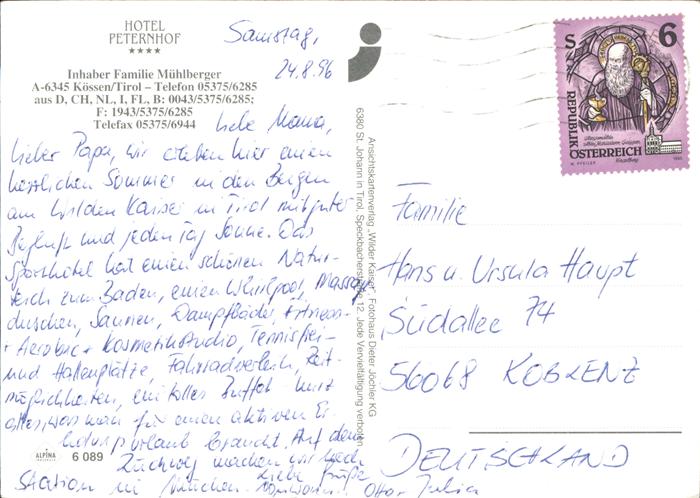 HOTEL
PETERNHOF
★★★★
Inhaber Familie Mühlberger
A-6345 Kössen/Tirol – Telefon 05375/6285
aus D, CH, NL, I, FL, B: 0043/5375/6285;
F: 1943/5375/6285
Telefax 05375/6944
Samstag,
24.8.96
Liebe Mama,
lieber Papa, wir erleben hier einen
herrlichen Sommer in den Bergen
am Wilden Kaiser in Tirol mit guter
Bergluft und jeden Tag Sonne. Das
Sporthotel hat einen schönen Natur-
teich zum Baden, einen Whirlpool, Massage
duschen, Saunen, Dampfbäder, Fitness-
+ Aerobic + Kosmetikstudio, Tennisfrei-
und Hallenplätze, Fahrradverleih, Reit-
möglichkeiten, ein tolles Buffet - kurz
alles, was man für einen aktiven Er-
holungsurlaub braucht. Auf dem
Rückweg machen wir noch
Station in München. Liebe Grüße
Otto + Julia
ALPINA
6 089
Ansichtskartenverlag „Wilder Kaiser“, Fotohaus Dieter Jöchler KG
6380 St. Johann in Tirol, Speckbacherstraße 12. Jede Vervielfältigung verboten
S 6
REPUBLIK
ÖSTERREICH
Familie
Hans u. Ursula Haupt
Südallee 74
56068 KOBLENZ
DEUTSCHLAND